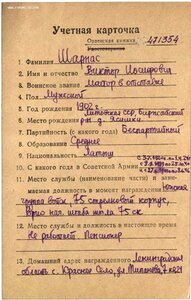 Учетная карточка
Орденская книжка
Удостоверение № 471354
1 Фамилия Шарпас
2. Имя и отчество Виктор Иосифович
3. Воинское звание майор в отставке
4. Пол Мужской
5. Год рождения 1902 г.
6. Место рождения Литовская сср,
р-н, д.
7. Партийность (с какого года) Беспартийный
8. Образование Среднее
9. Национальность
10. С какого года в Советской Армии
11. Место службы (наименование части) и занимаемая должность в момент награждения
75 стрелковый корпус,
штаба 75 ск.
12. Место службы и должность в настоящее время
Не работает. Пенсионер
13. Домашний адрес награжденного Ленинградская
область г. Красное Село, ул.